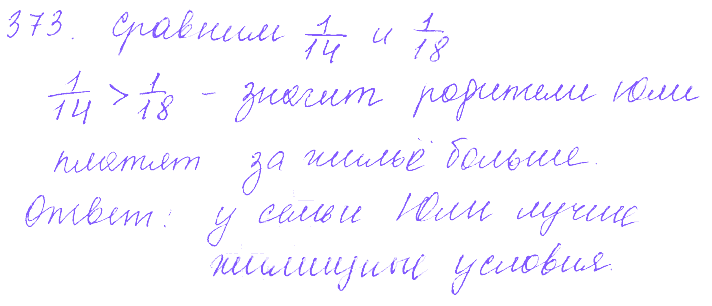 373. Сравним 1/14 и 1/18
1/14 > 1/18 - значит родители Юли
платят за жильё больше.
Ответ: у семьи Юли лучше
жилищные условия.